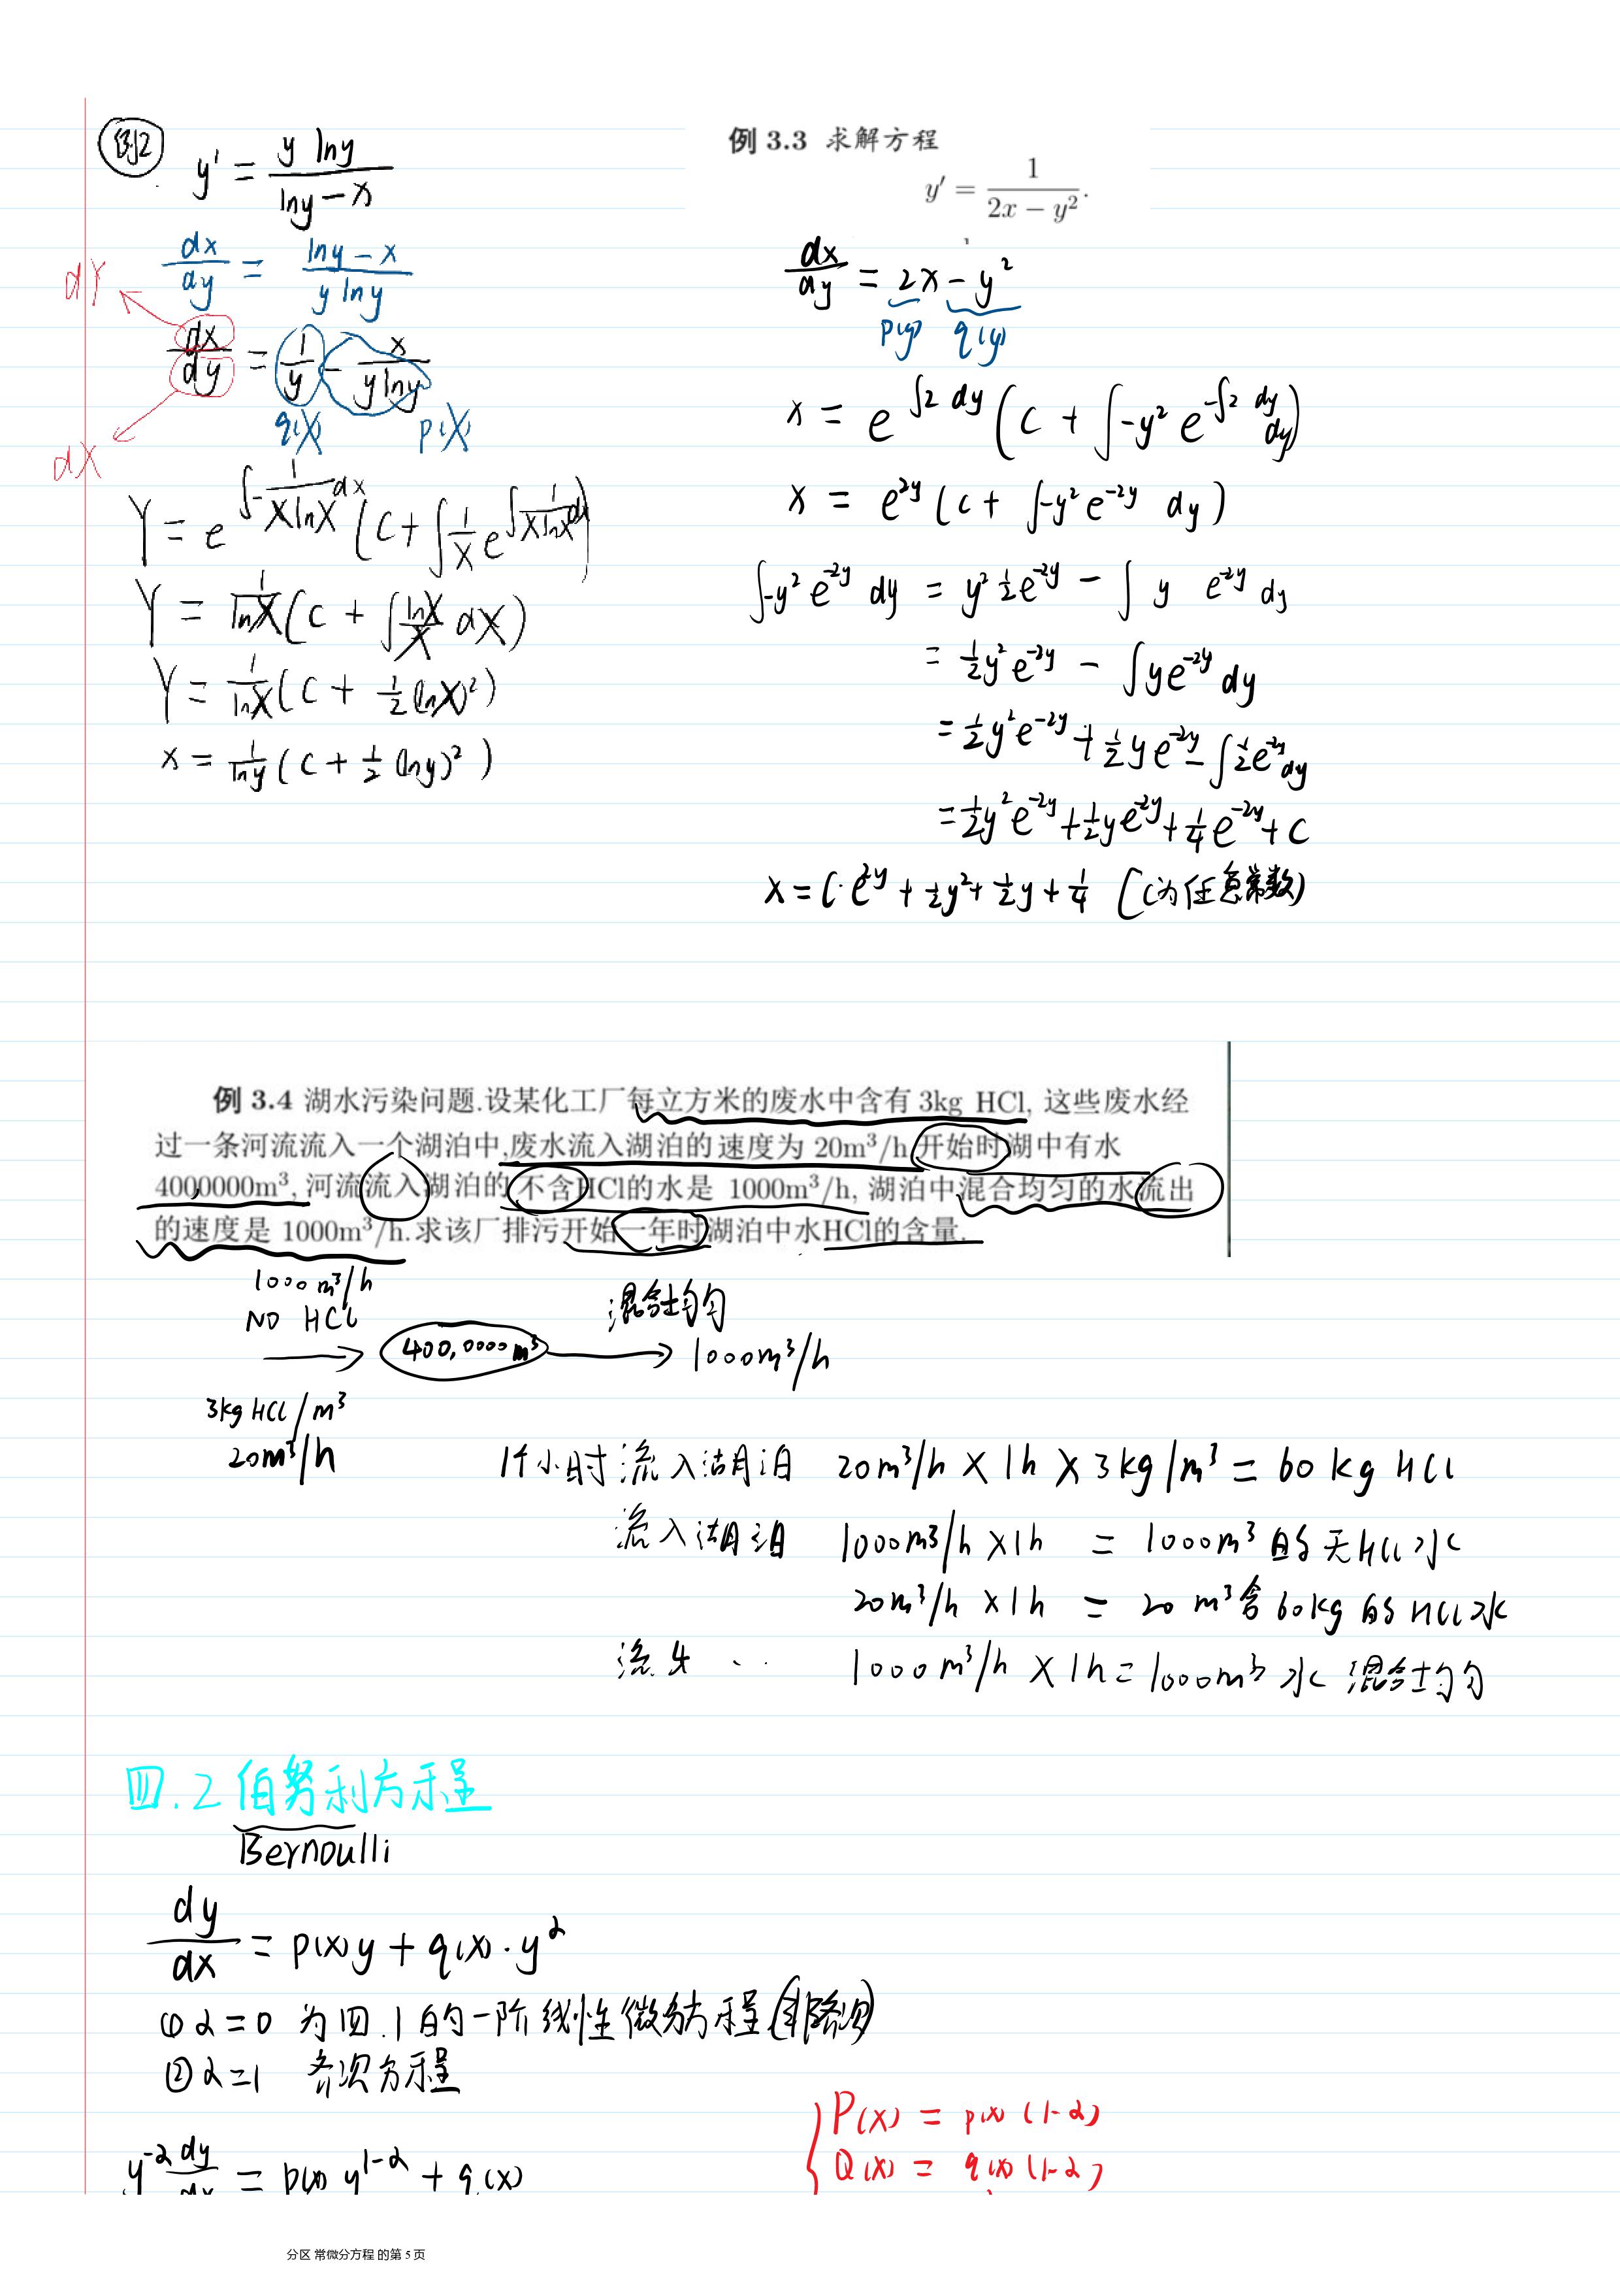 例2
y' = \frac{y lny}{lny - x}
\frac{dx}{dy} = \frac{lny - x}{y lny}
dY
\frac{dx}{dy} = \frac{1}{y} - \frac{x}{y lny}
q(X) p(X)
dX
Y = e^{∫-\frac{1}{XlnX}dx}(C + ∫\frac{1}{X} e^{∫\frac{1}{XlnX}dx})
Y = \frac{1}{lnX}(C + ∫\frac{lnX}{X} dX)
Y = \frac{1}{lnX}(C + \frac{1}{2}(lnX)²)
x = \frac{1}{lny}(C + \frac{1}{2}(lny)²)
例 3.3 求解方程
y′ = \frac{1}{2x − y²}.
\frac{dx}{dy} = 2x - y²
p(y) q(y)
x = e^{∫2 dy}(C + ∫-y² e^{-∫2 dy} dy)
x = e^{2y}(C + ∫-y² e^{-2y} dy)
∫-y² e^{-2y} dy = y² \frac{1}{2}e^{-2y} - ∫ y e^{-2y} dy
= \frac{1}{2}y² e^{-2y} - ∫ye^{-2y} dy
= \frac{1}{2}y² e^{-2y} + \frac{1}{2}ye^{-2y} - ∫\frac{1}{2}e^{-2y} dy
= \frac{1}{2}y² e^{-2y} + \frac{1}{2}ye^{-2y} + \frac{1}{4}e^{-2y} + C
x = C·e^{2y} + \frac{1}{2}y² + \frac{1}{2}y + \frac{1}{4} (C为任意常数)
例 3.4 湖水污染问题.设某化工厂每立方米的废水中含有 3kg HCl, 这些废水经
过一条河流流入一个湖泊中,废水流入湖泊的速度为 20m³/h.开始时湖中有水
4000000m³, 河流流入湖泊的不含HCl的水是 1000m³/h, 湖泊中混合均匀的水流出
的速度是 1000m³/h.求该厂排污开始一年时湖泊中水HCl的含量.
1000m³/h
NO HCl
混合均匀
400,0000m³
1000m³/h
3kg HCl/m³
20m³/h
1个小时流入湖泊 20m³/h × 1h × 3kg/m³ = 60kg HCl
流入湖泊 1000m³/h × 1h = 1000m³ 的无HCl水
20m³/h × 1h = 20m³含60kg的HCl水
流失 .. 1000m³/h × 1h = 1000m³ 水 混合均匀
四.2 伯努利方程
Bernoulli
\frac{dy}{dx} = p(x)y + q(x)·y^α
① α=0 为四.1的一阶线性微分方程(非齐次)
② α=1 齐次方程
P(x) = p(x)(1-α)
Q(x) = q(x)(1-α)
y^{-α}\frac{dy}{dx} = p(x) y^{1-α} + q(x)
分区 常微分方程 的第 5 页